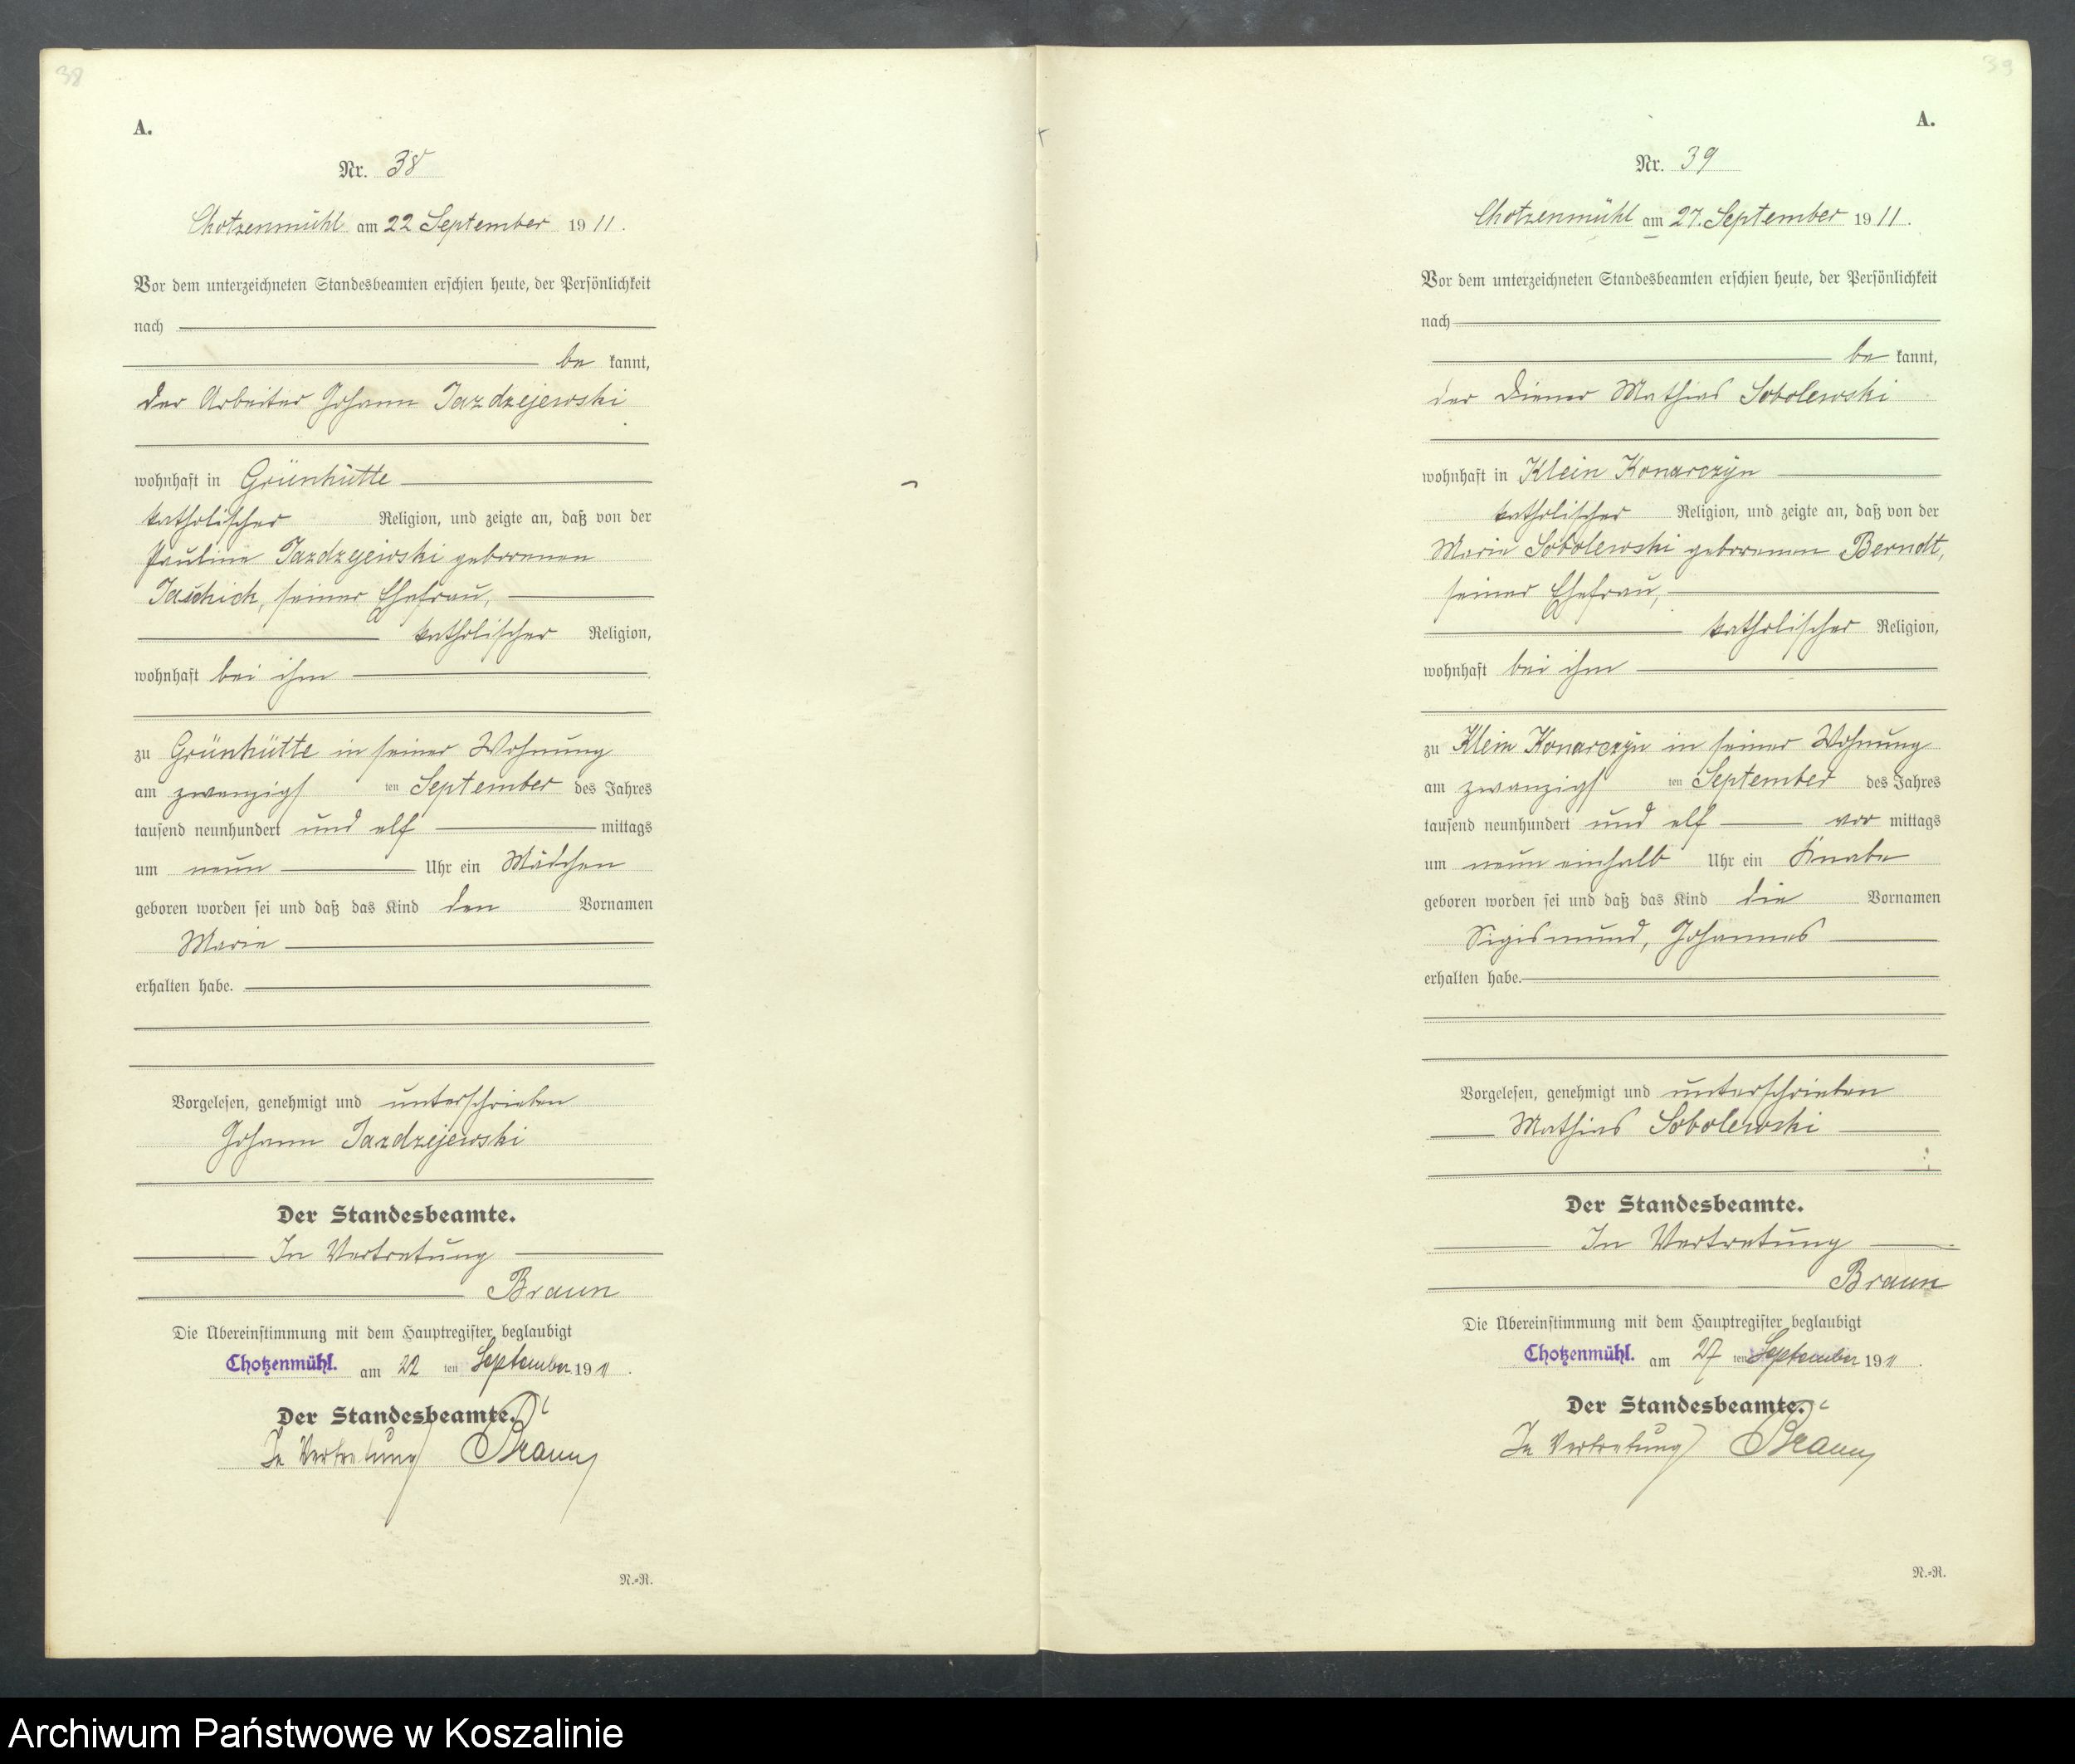 38
A.
Nr. 38
Chotzenmühl am 22 September 1911.
Vor dem unterzeichneten Standesbeamten erschien heute, der Persönlichkeit
nach
be kannt,
der Arbeiter Johann Jazdzejewski
wohnhaft in Grünhütte
katholischer Religion, und zeigte an, daß von der
Pauline Jazdzejewski geborenen
Jaschick, seiner Ehefrau,
katholischer Religion,
wohnhaft bei ihm
zu Grünhütte in seiner Wohnung
am zwanzigs ten September des Jahres
tausend neunhundert und elf mittags
um neun Uhr ein Mädchen
geboren worden sei und daß das Kind den Vornamen
Marie
erhalten habe.
Vorgelesen, genehmigt und unterschrieben
Johann Jazdzejewski
Der Standesbeamte.
In Vertretung
Braun
Die Übereinstimmung mit dem Hauptregister beglaubigt
Chotzenmühl. am 22 ten September 1911.
Der Standesbeamte.
In Vertretung Braun
N.=R.
39
A.
Nr. 39
Chotzenmühl am 27. September 1911.
Vor dem unterzeichneten Standesbeamten erschien heute, der Persönlichkeit
nach
be kannt,
der Diener Mathias Sobolewski
wohnhaft in Klein Konarczyn
katholischer Religion, und zeigte an, daß von der
Marie Sobolewski geborenen Berndt,
seiner Ehefrau,
katholischer Religion,
wohnhaft bei ihm
zu Klein Konarczyn in seiner Wohnung
am zwanzigs ten September des Jahres
tausend neunhundert und elf vor mittags
um neun einhalb Uhr ein Knabe
geboren worden sei und daß das Kind die Vornamen
Sigismund, Johannes
erhalten habe.
Vorgelesen, genehmigt und unterschrieben
Mathias Sobolewski
Der Standesbeamte.
In Vertretung
Braun
Die Übereinstimmung mit dem Hauptregister beglaubigt
Chotzenmühl. am 27 ten September 1911.
Der Standesbeamte.
In Vertretung Braun
N.=R.
Archiwum Państwowe w Koszalinie